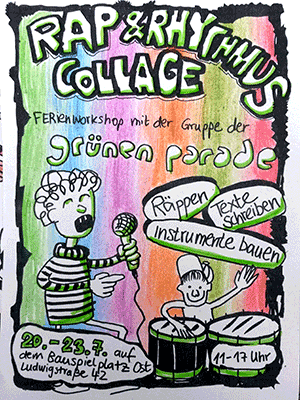 RAP & RHYTHMUS
COLLAGE
FERIENWORKSHOP mit der GRUPPE der
grünen parade
Räppen
Texte
schreiben
Instrumente bauen
20.-23.7. auf
dem Bauspielplatz Ost
Ludwigstraße 42
11-17 Uhr